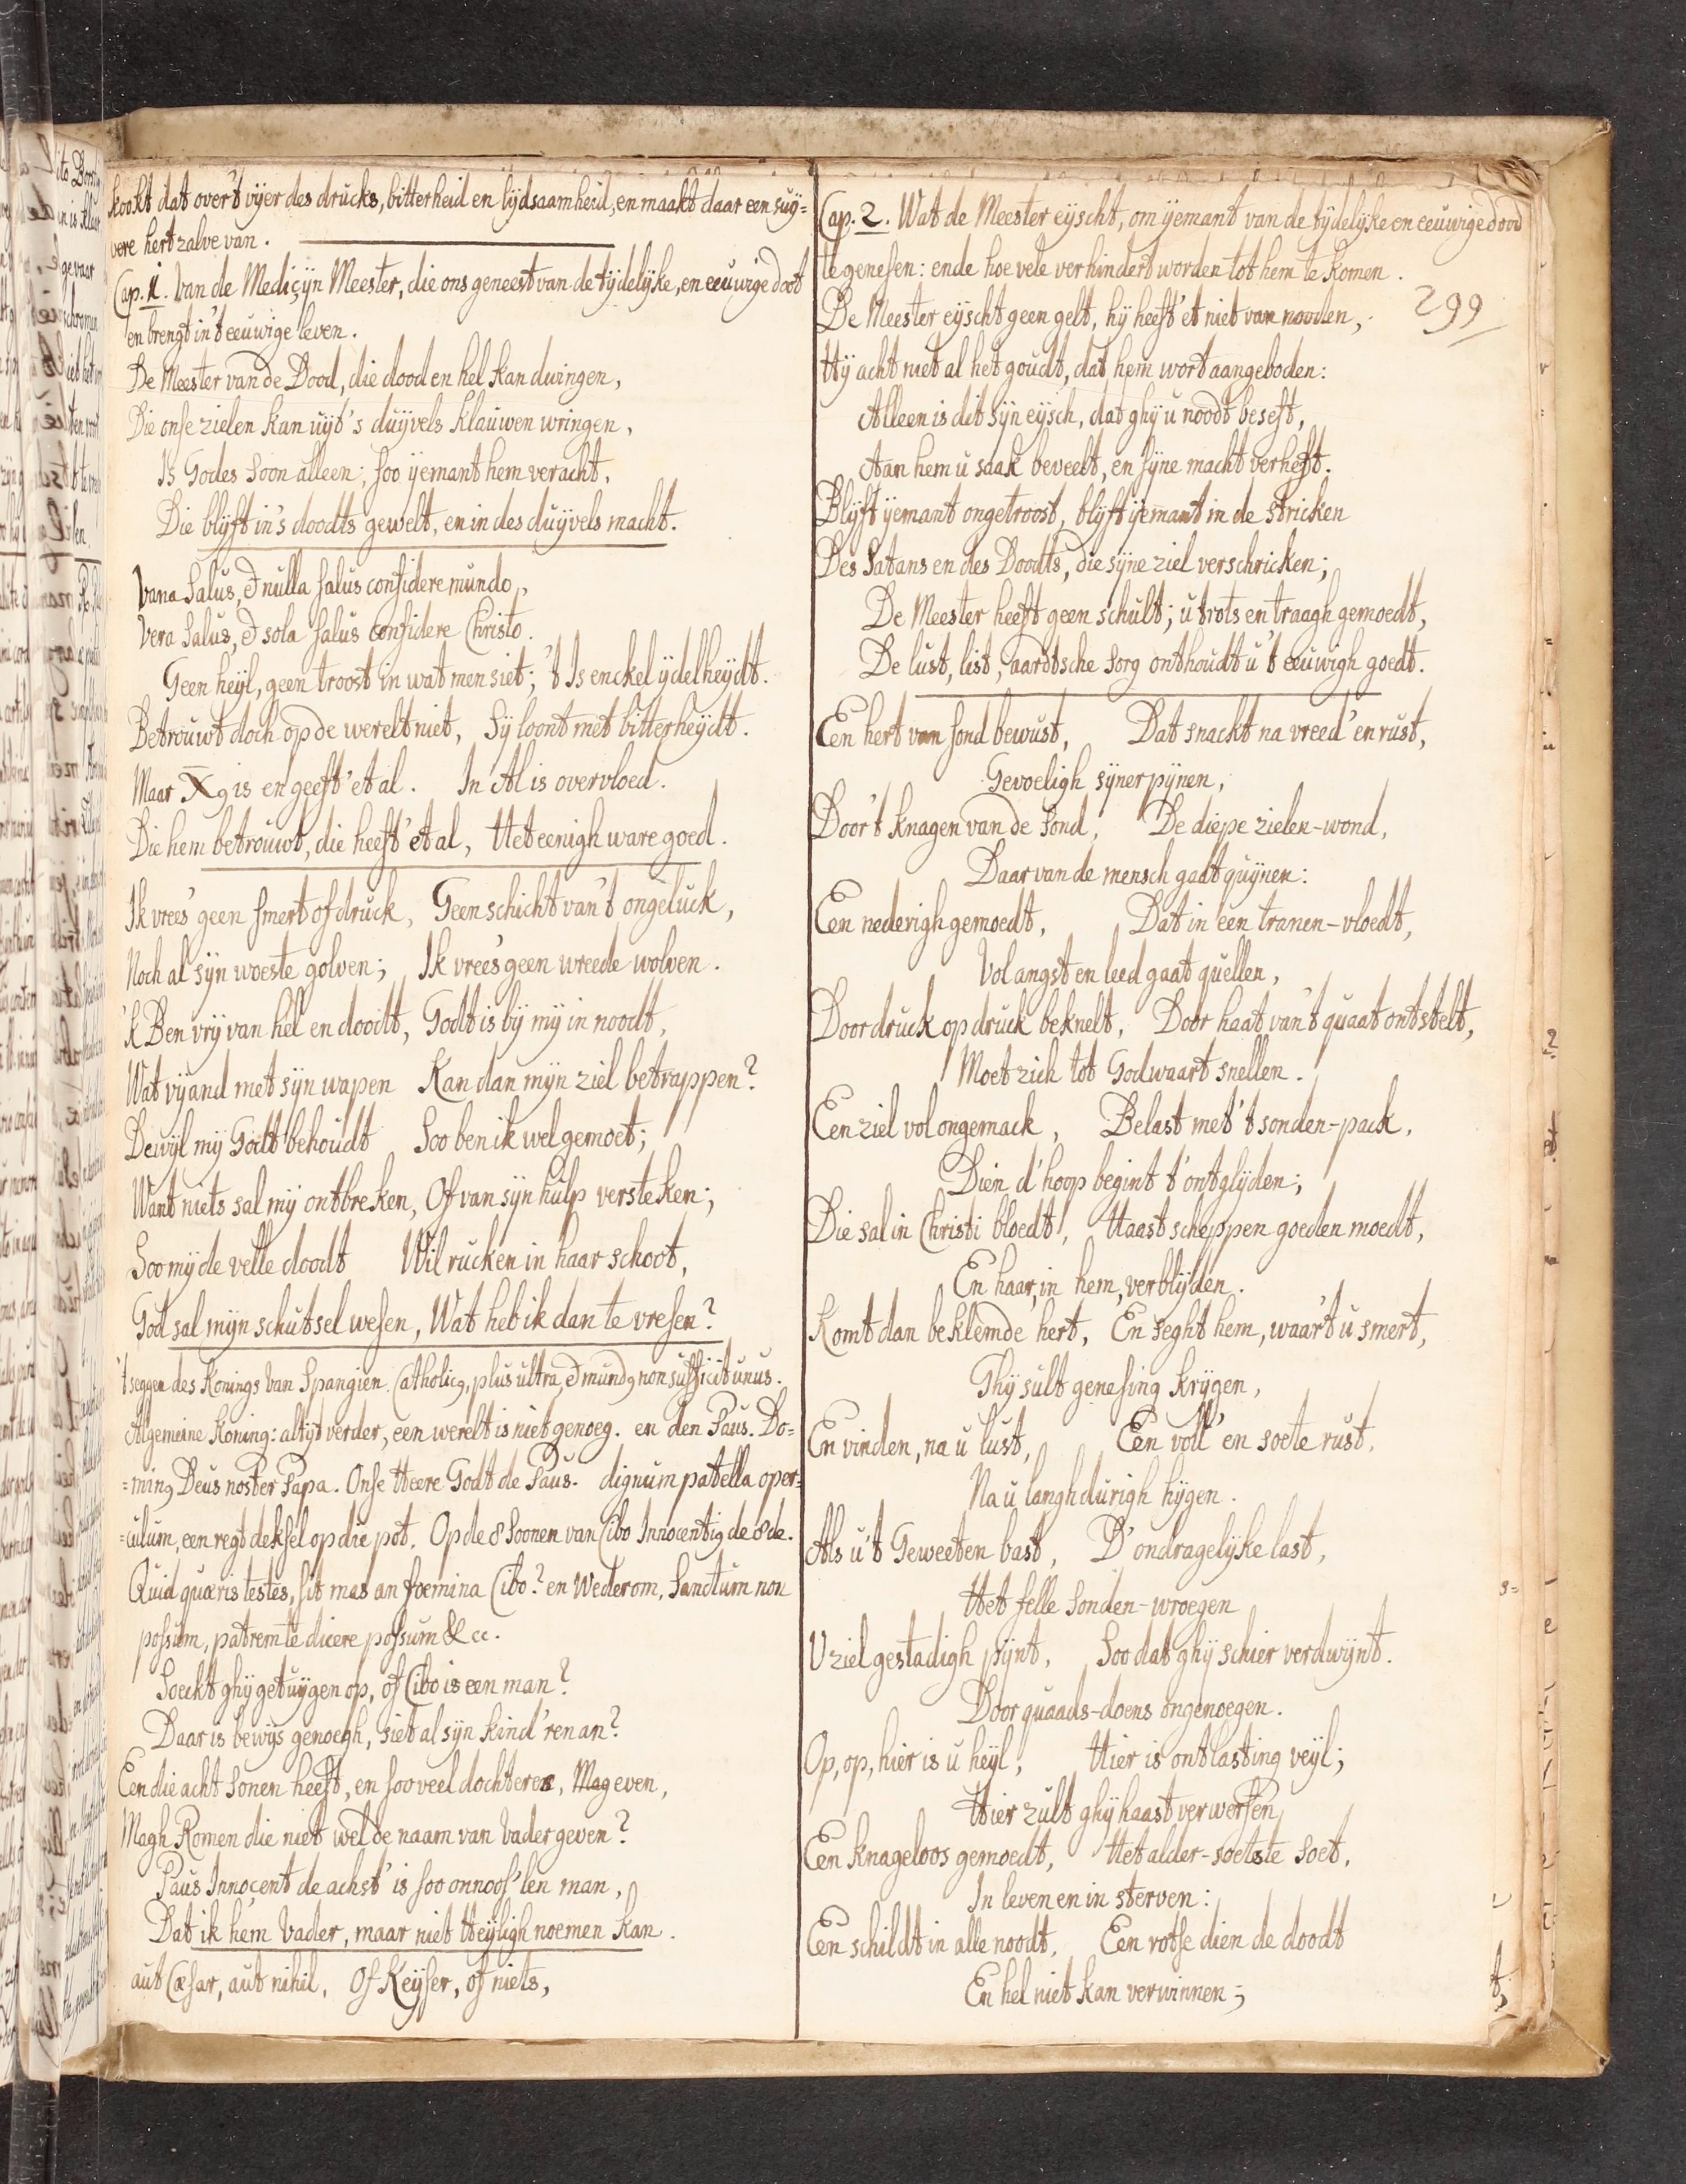 kookt dat over't vyer des drucks, bitterheid en lijdsaamheid, en maakt daar een suy=
vere hertzalve van.
Cap. 1. Van de Mediçijn Meester, die ons geneest van de tijdelijke, en eeuwige doot
en brengt in't eeuwige leven.
De Meester van de Dood, die dood en hel kan dwingen,
Die onse zielen kan uijt 's duijvels klauwen wringen,
Is Godes Soon alleen; soo ijemant hem veracht,
Die blijft in's doodts gewelt, en in des duijvels macht.
Vana Salus, & nulla salus confidere mundo,
Vera Salus, & sola salus confidere Christo.
Geen heijl, geen troost in wat men siet; 't Is enckel ijdelheijdt.
Betrouwt doch op de werelt niet, Sij loont met bitterheijdt.
Maar X9 is en geeft 'et al. In 'Al is overvloed.
Die hem betrouwt, die heeft 'et al, Het eenigh ware goed.
Ik vrees' geen smert of druck, Geen schicht van't ongeluck,
Noch al sijn woeste golven; Ik vrees' geen wreede wolven.
'k Ben vrij van hel en doodt, Godt is bij mij in noodt,
Wat vijand met sijn wapen Kan dan mijn ziel betrappen?
Dewijl mij Godt behoudt Soo ben ik wel gemoet;
Want niets sal mij ontbreken, Of van sijn hulp versteken;
Soo mij de velle doodt Wil rucken in haar schoot,
God sal mijn schutsel wesen, Wat heb ik dan te vresen?
't seggen des Konings van Spangien. Catholic9, plus ultra, & mund9 non sufficit unus.
Algemeine Koning: altijt verder, een werelt is niet genoeg. en den Paus. Do=
=min9 Deus noster Papa. Onse Heere Godt de Paus. dignum patella oper=
=culum, een regt deksel op die pot. Op de 8 Soonen van Cibo Innocenti9 de 8de.
Quid quæris testes, sit mas an foemina Cibo? en Wederom, Sanctum non
possum, patrem te dicere possum &cc.
Soeckt ghij getuijgen op, of Cibo is een man?
Daar is bewijs genoegh, siet al sijn kind'ren an?
Een die acht sonen heeft, en soo veel dochteren, Mag even,
Magh Romen die niet wel de naam van Vader geven?
Paus Innocent de achst' is soo onnoos'len man,
Dat ik hem Vader, maar niet Heijligh noemen kan.
aut Cæsar, aut nihil. Of Keijser, of niets,
Cap. 2. Wat de Meester eijscht, om ijemant van de tijdelijke en eeuwige dood
te genesen: ende hoe vele verhindert worden tot hem te komen.
299
De Meester eijscht geen gelt, hij heeft 'et niet van nooden,
Hij acht niet al het goudt, dat hem wort aangeboden:
Alleen is dit sijn eijsch, dat ghij u noodt beseft,
Aan hem u saak beveelt, en sijne macht verheft.
Blijft ijemant ongetroost, blijft ijemant in de stricken
Des Satans en des Doodts, die sijne ziel verschricken;
De Meester heeft geen schult; u trots en traagh gemoedt,
De lust, list, aardtsche sorg onthoudt u 't eeuwigh goedt.
Een hert van sond bewust, Dat snackt na vreed' en rust,
Gevoeligh sijner pijnen,
Door't knagen van de sond, De diepe zielen-wond,
Daar van de mensch gaat quijnen:
Een nederigh gemoedt, Dat in een tranen-vloedt,
Vol angst en leed gaat quellen,
Door druck op druck beknelt, Door haat van't quaat ontstelt,
Moet zich tot Godwaart snellen.
Een ziel vol ongemack, Belast met 't sonden-pack,
Dien d'hoop begint t'ontglijden;
Die sal in Christi bloedt, Haast scheppen goeden moedt,
En haar, in hem, verblijden.
Komt dan beklemde hert, En seght hem, waar't u smert,
Ghij sult genesing krijgen,
En vinden, na u lust, Een voll' en soete rust,
Na u langhdurigh hijgen.
Als u 't Geweeten bast, D'ondragelijke last,
Het felle sonden-wroegen
U ziel gestadigh pijnt, Soo dat ghij schier verdwijnt.
Door quaads-doens ongenoegen.
Op, op, hier is u heijl, Hier is ontlasting veijl;
Hier zult ghij haast verwerfen
Een knageloos gemoedt, Het alder-soetste soet,
In leven en in sterven:
Een schildt in alle noodt, Een rotse dien de doodt
En hel niet kan verwinnen;